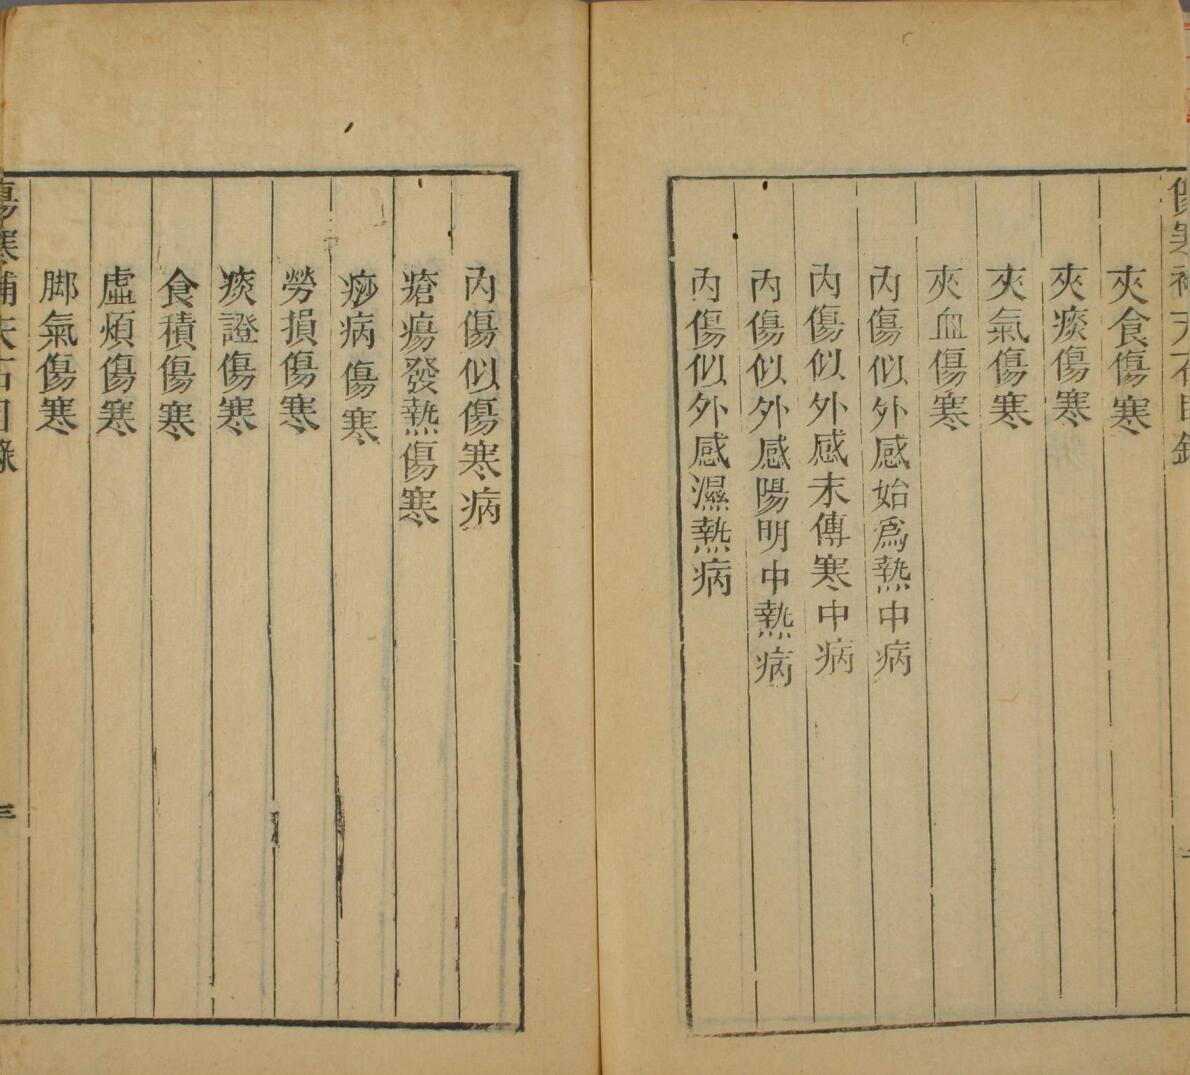 傷寒補天石目錄
夾食傷寒
夾痰傷寒
夾氣傷寒
夾血傷寒
內傷似外感始爲熱中病
內傷似外感末傳寒中病
內傷似外感陽明中熱病
內傷似外感濕熱病
內傷似傷寒病
瘡瘍發熱傷寒
痧病傷寒
勞損傷寒
痰證傷寒
食積傷寒
虛煩傷寒
脚氣傷寒
傷寒補天石目錄
三